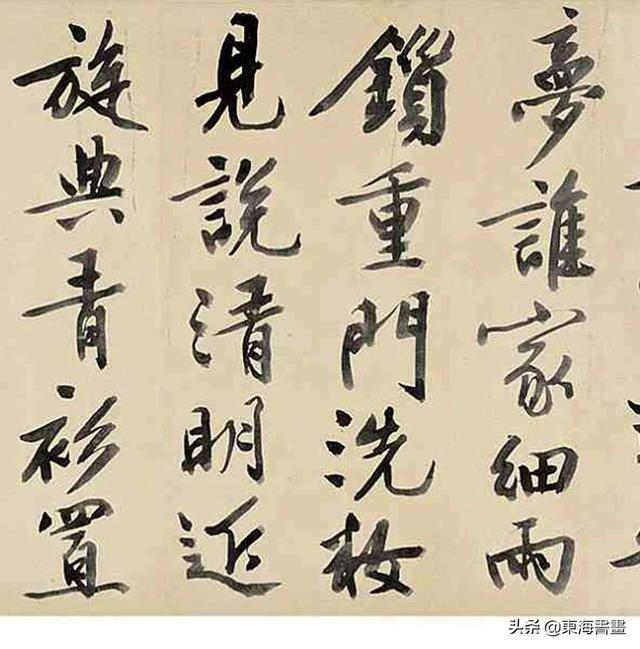 夢誰家細雨
鎖重門洗
見說清明近
旋典青衫置
头条 @東海書畫